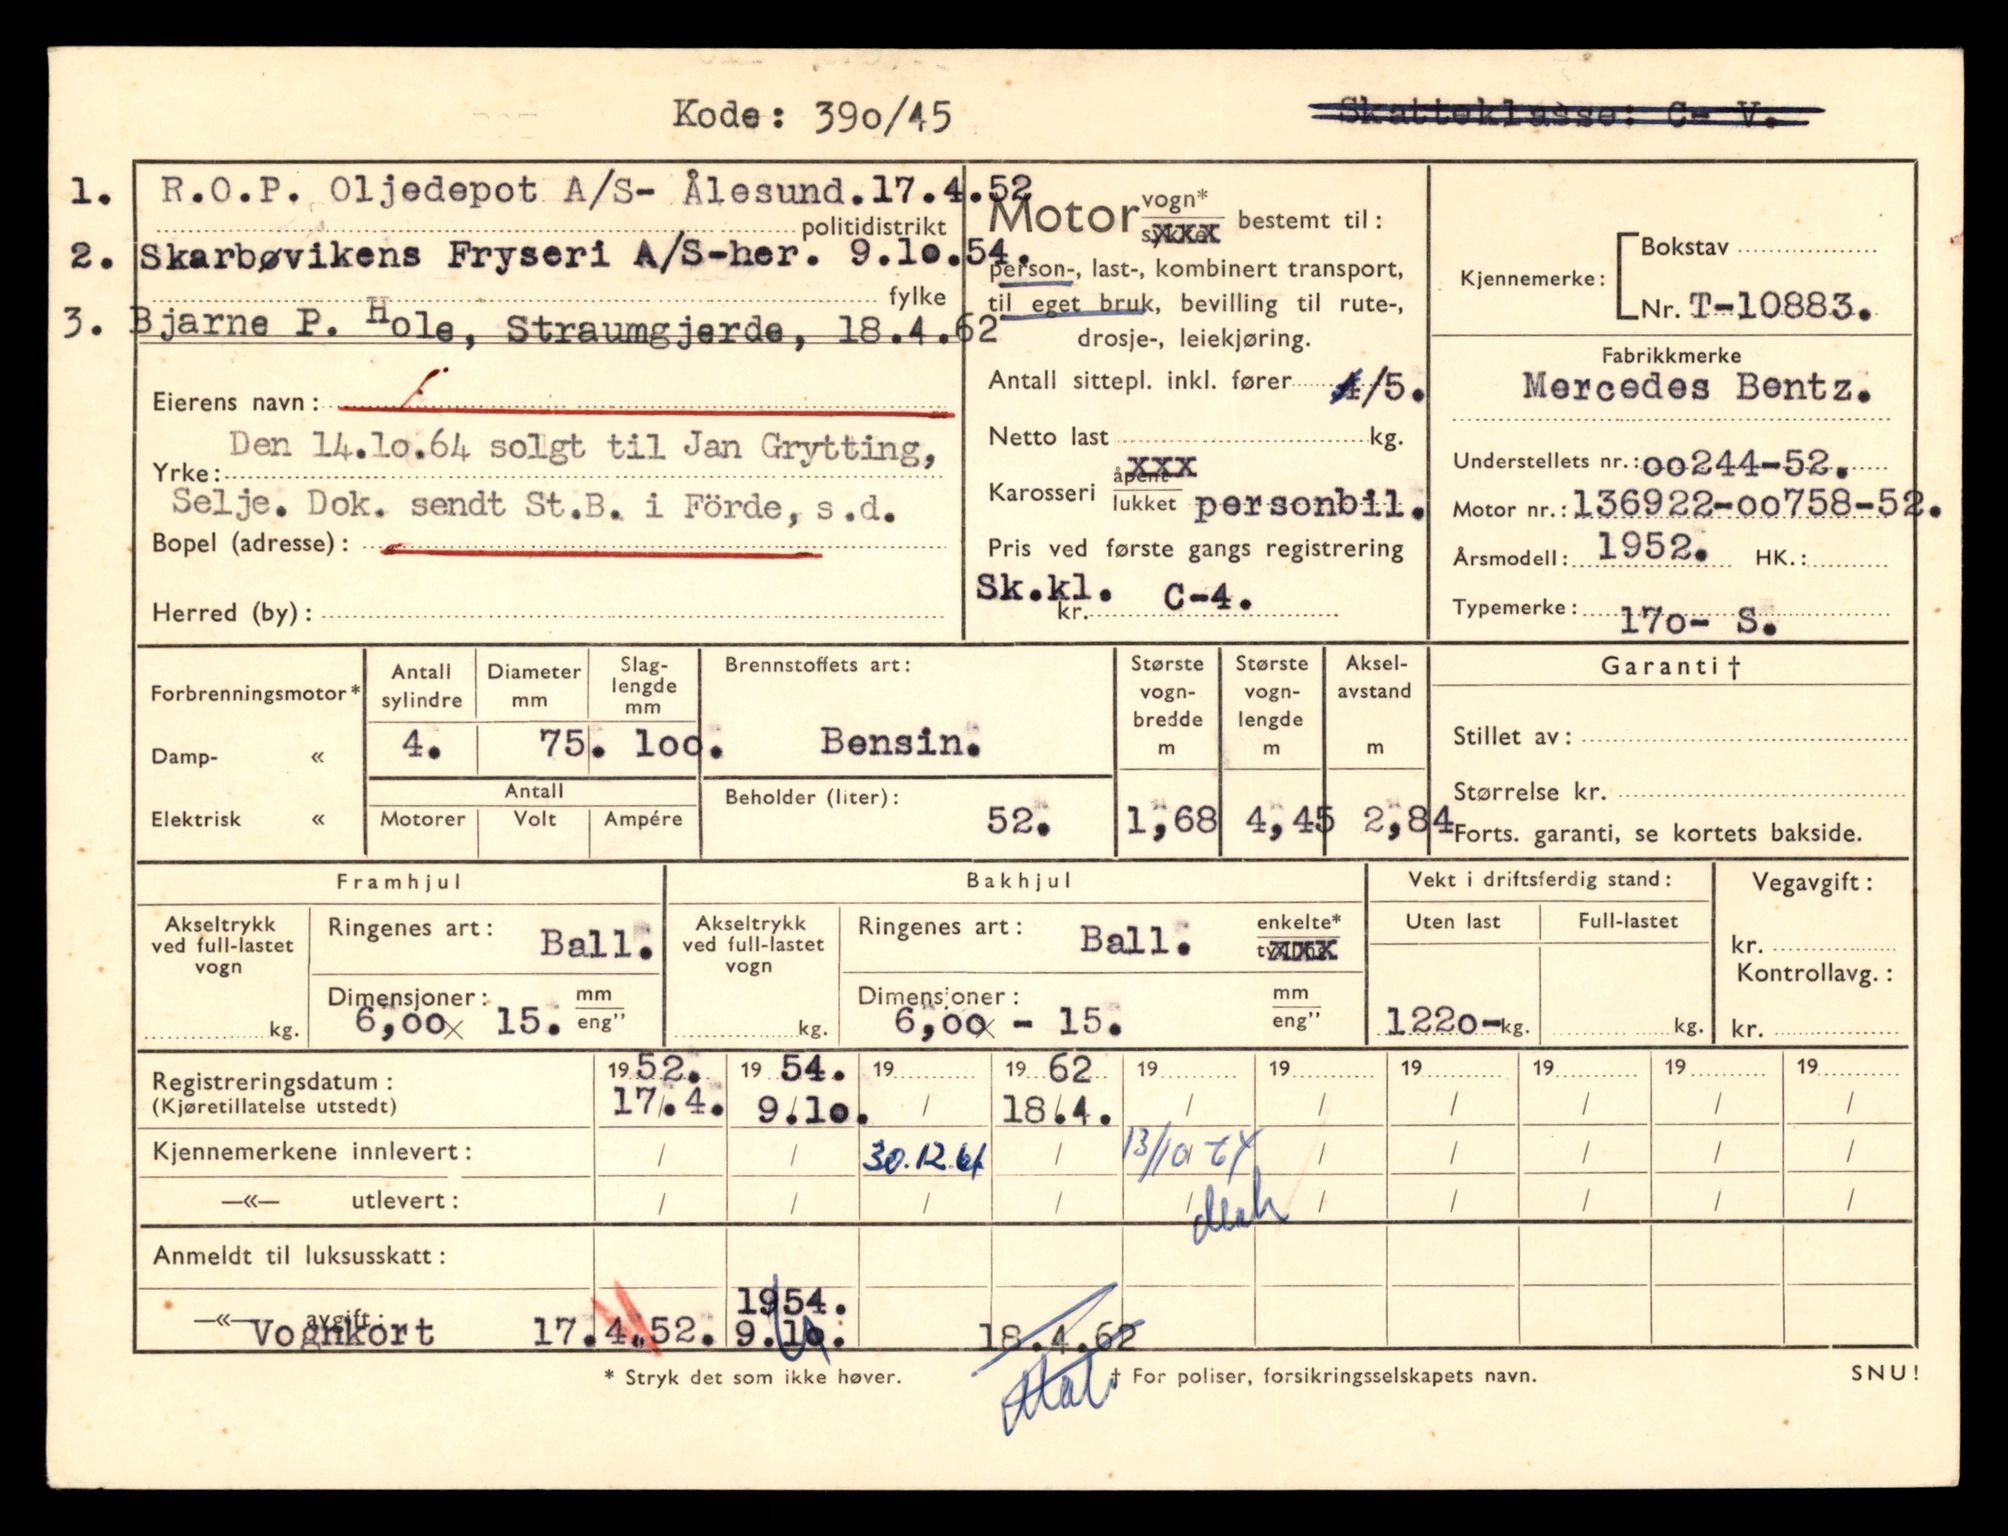 Kode: 39o/45
Skatteklasse: C- V.
1. R.O.P. Oljedepot A/S- Ålesund.17.4.52
politidistrikt
2. Skarbøvikens Fryseri A/S-her. 9.1o.54.
fylke
3. Bjarne P. Hole, Straumgjerde, 18.4.62
Eierens navn:
Den 14.1o.64 solgt til Jan Grytting,
Yrke:
Selje. Dok. sendt St.B. i Förde, s.d.
Bopel (adresse):
Herred (by):
Motor vogn* xxx bestemt til:
person-, last-, kombinert transport,
til eget bruk, bevilling til rute-,
drosje-, leiekjøring.
Antall sittepl. inkl. fører 4/5.
Netto last kg.
Karosseri åpent xxx
lukket personbil.
Pris ved første gangs registrering
Sk.kl. C-4.
kr.
Kjennemerke: Bokstav
Nr. T-10883.
Fabrikkmerke
Mercedes Bentz.
Understellets nr.: oo244-52.
Motor nr.: 136922-oo758-52.
Årsmodell: 1952. HK.:
Typemerke: 17o- S.
Forbrenningsmotor*
Damp- «
Elektrisk «
Antall sylindre
4.
Diameter mm
75.
Slag-lengde mm
loo.
Antall
Motorer Volt Ampére
Brennstoffets art:
Bensin.
Beholder (liter):
52.
Største vogn-bredde m
1,68
Største vogn-lengde m
4,45
Aksel-avstand m
2,84
Garanti†
Stillet av:
Størrelse kr.
Forts. garanti, se kortets bakside.
Framhjul
Akseltrykk ved full-lastet vogn
kg.
Ringenes art: Ball.
Dimensjoner: mm
6,oo x 15. eng"
Bakhjul
Akseltrykk ved full-lastet vogn
kg.
Ringenes art: Ball. enkelte* xxx
Dimensjoner: mm
6,oo x - 15. eng"
Vekt i driftsferdig stand:
Uten last Full-lastet
122o- kg. kg.
Vegavgift:
kr.
Kontrollavg.:
kr.
Registreringsdatum: 1952. 1954. 19 1962 19 19 19 19 19 19
(Kjøretillatelse utstedt) 17/.4. 9./1o. / 18/.4. / / / / / /
Kjennemerkene innlevert: / / 30.12.61 / 13/10 64 / / / / /
—«— utlevert: / / / / / / / / / /
Anmeldt til luksusskatt:
1954.
—«— avgift:
Vognkort 17.4.52. 9.1o. 18.4.62
* Stryk det som ikke høver. † For poliser, forsikringsselskapets navn. SNU!